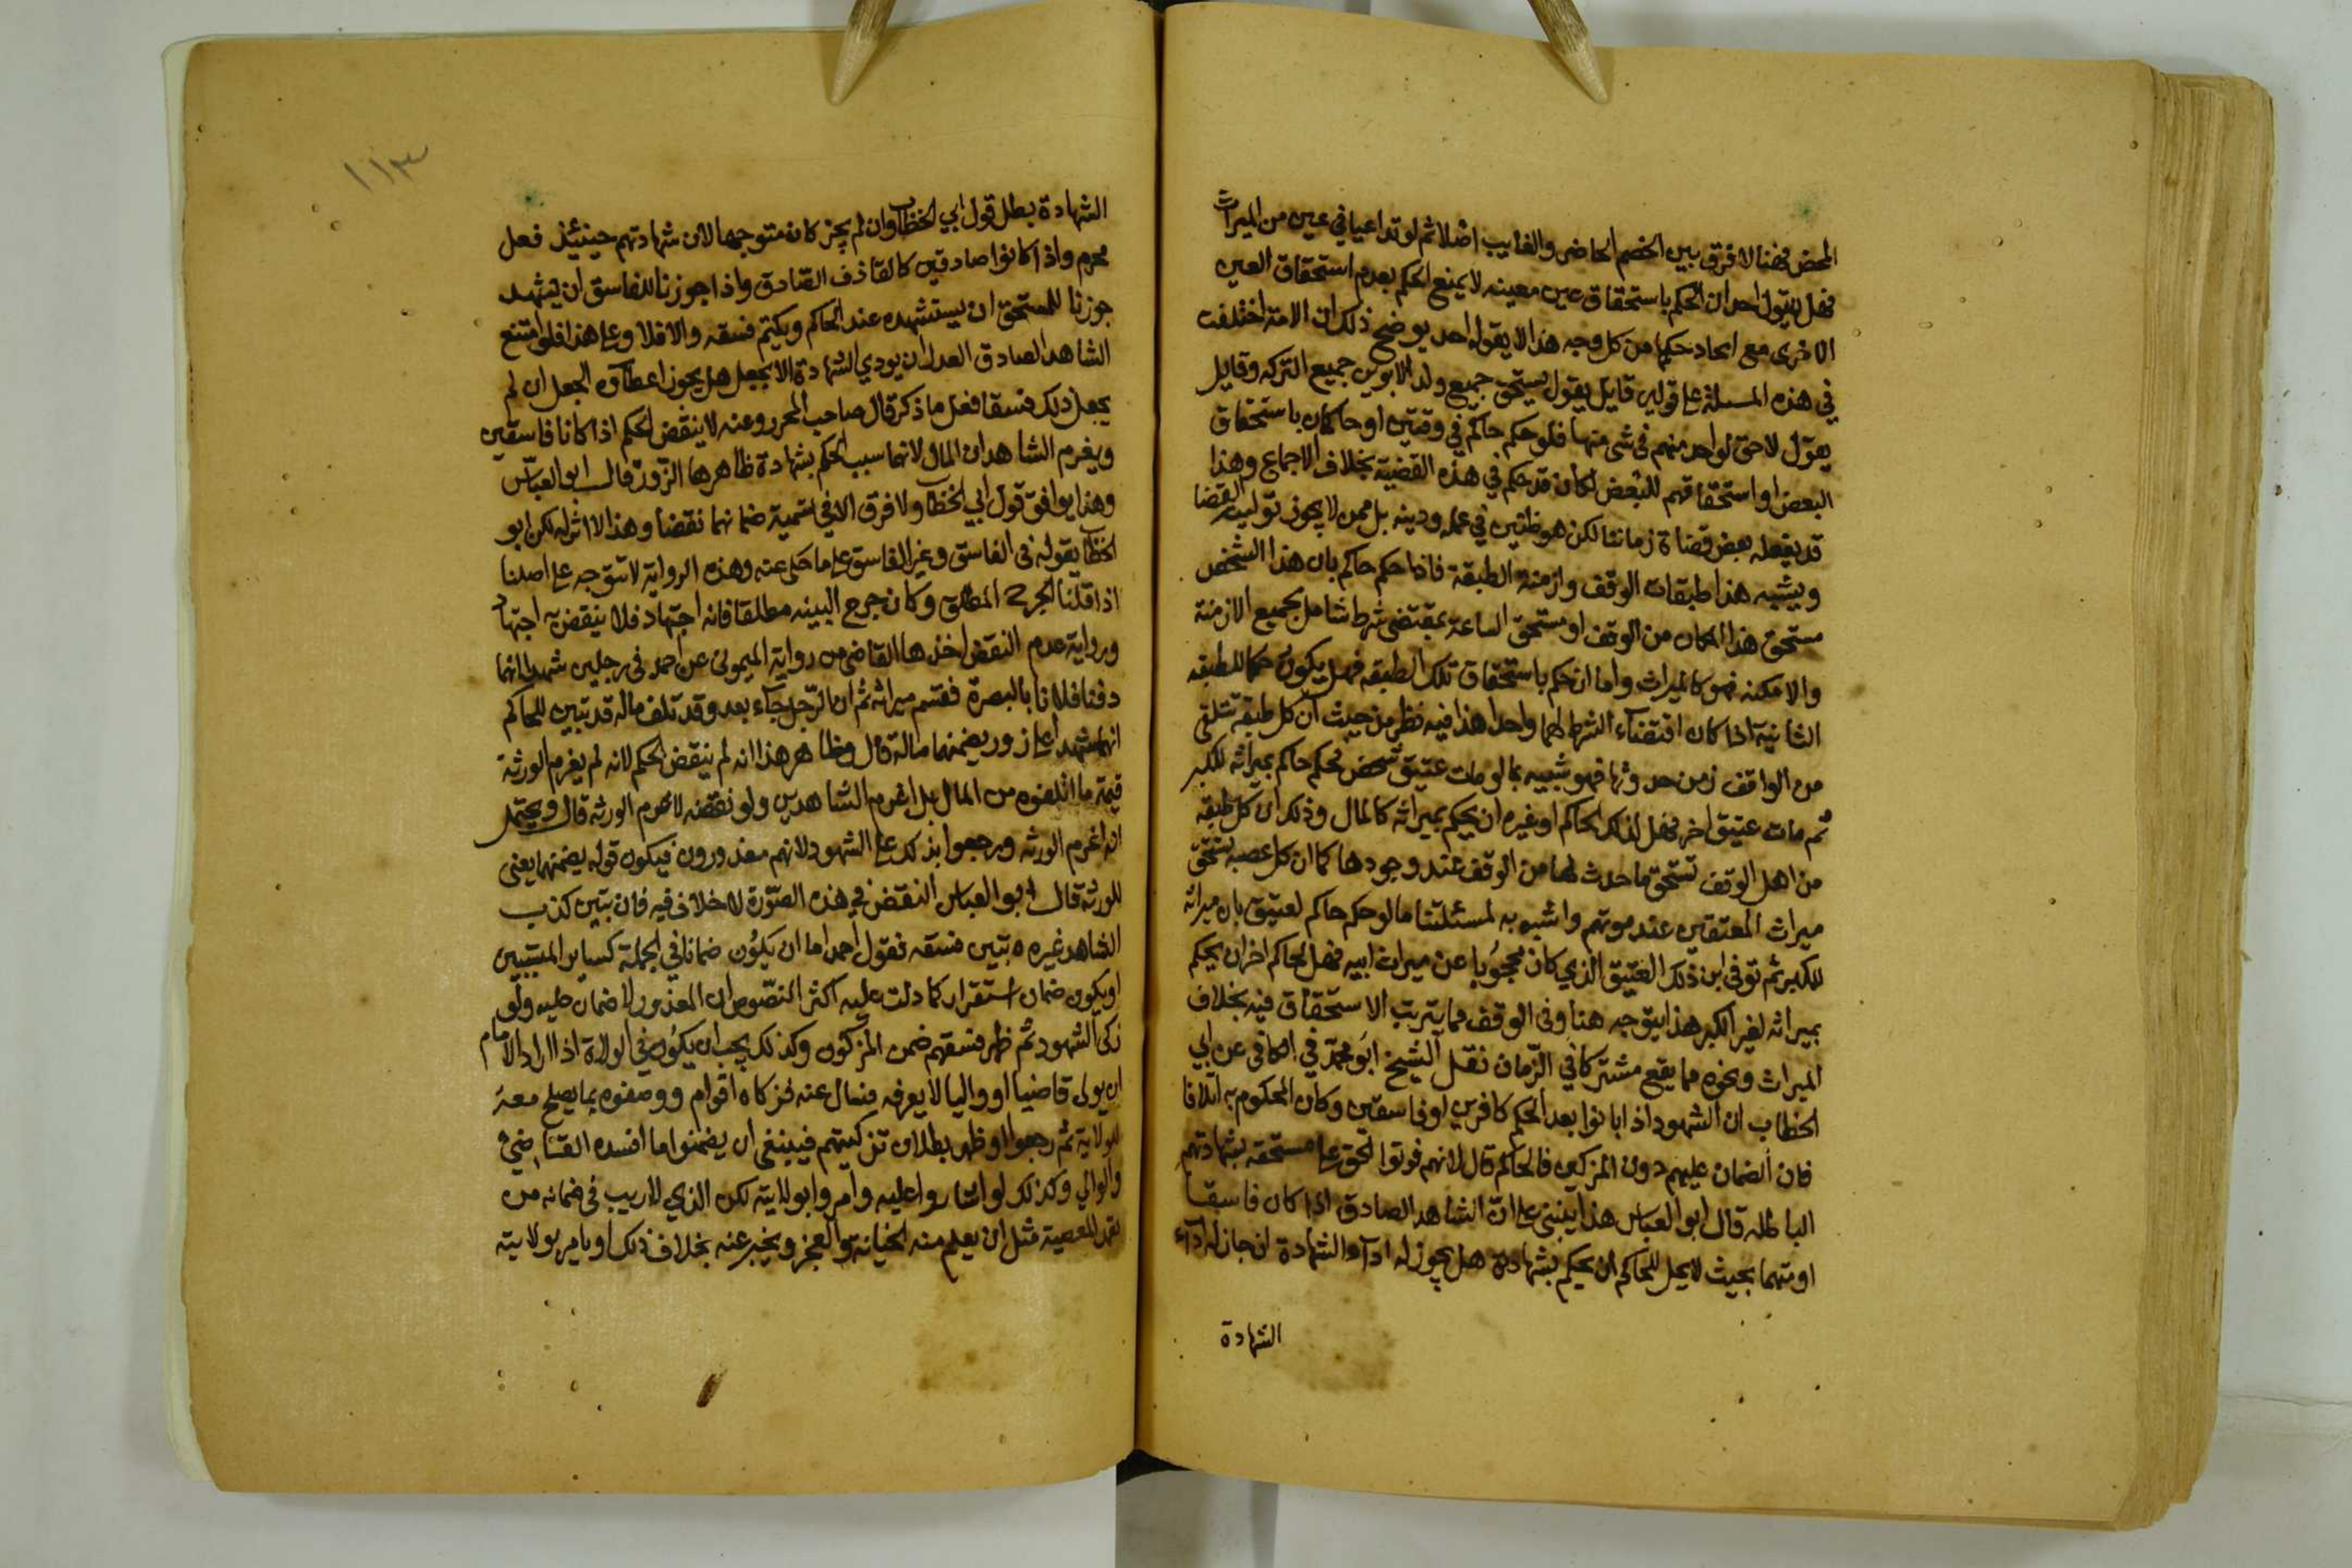 المحض فهنا لا فرق بين الخصم الحاضر والغايب اصلا ثم لو تداعيا في عين من الميراث
فهل يقول احد ان الحكم باستحقاق عين معينه لا يمنع الحكم بعدم استحقاق العين
الاخرى مع اتحاد حكمهما من كل وجه هذا لا يقوله احد يوضح ذلك ان الامة اختلفت
في هذه المسئلة على قولين قايل يقول يستحق جميع ولد الابوين جميع التركه وقايل
يقول لا حق لواحد منهم في شى منها فلو حكم حاكم في وقتين او حاكمان باستحقاق
البعض او استحقاقهم للبعض لكان قد حكم في هذه القضية بخلاف الاجماع وهذا
قد يفعله بعض قضاة زماننا لكن هو ظنين في علمه ودينه بل ممن لا يجوز توليه القضا
ويشبه هذا طبقات الوقف وازمنة الطبقة فاذا حكم حاكم بان هذا الشخص
مستحق هذا المكان من الوقف او مستحق الساعة بمقتضى شرط شامل لجميع الازمنة
والامكنه فهو كالميراث واما ان حكم باستحقاق تلك الطبقه فهل يكون حكما للطبقه
الثانية اذا كان اقتضاء الشرط لهما واحدا هذا فيه نظر من حيث ان كل طبقة تتلقى
من الواقف زمن حدوثها فهو شبيه بما لو مات عتيق شخص فحكم حاكم بميراثه للكبر
ثم مات عتيق اخر فهل لذلك الحاكم او غيره ان يحكم بميراثه كالمال وذلك ان كل طبقه
من اهل الوقف تستحق ما حدث لها من الوقف عند وجودها كما ان كل عصبه تستحق
ميراث المعتقين عند موتهم واشبه به لمسئلتنا ما لو حكم حاكم لعتيق بان ميراثه
للكبر ثم توفى ابن ذلك العتيق الذي كان محجوبا عن ميراث ابيه فهل لحاكم اخر ان يحكم
بميراثه لغير الكبر هذا يتوجه هنا وفى الوقف مما يترتب الاستحقاق فيه بخلاف
الميراث ونحوه مما يقع مشتركا في الزمان نقل الشيخ ابو محمد في الكافى عن ابي
الخطاب ان الشهود اذا بانوا بعد الحكم كافرين او فاسقين وكان المحكوم به اتلافا
فان الضمان عليهم دون المزكين فالحاكم قال لانهم فوتوا الحق على مستحقه بشهادتهم
الباطله قال ابو العباس هذا يبنى على ان الشاهد الصادق اذا كان فاسقا
او متهما بحيث لا يحل للحاكم ان يحكم بشهادة هل يجوز له اداء الشهادة ان جاز له اداء
الشهادة
١١٣
الشهادة بطل قول ابي الخطاب وان لم يجز كان متوجها لان شهادتهم حينئذ فعل
محرم واذا كانوا صادقين كالقاذف الصادق واذا جوزنا للفاسق ان يشهد
جوزنا للمستحق ان يستشهده عند الحاكم ويكتم فسقه والا فلا وعلى هذا فلو امتنع
الشاهد الصادق العدل ان يودي الشهادة الا بجعل هل يجوز اعطاؤه الجعل ان لم
يجعل ذلك فسقا فعلى ما ذكر قال صاحب المحرر وعنه لا ينقض الحكم اذا كانا فاسقين
ويغرم الشاهدان المال لانهما سبب الحكم بشهادة ظاهرها الزور قال ابو العباس
وهذا يوافق قول ابي الخطاب ولا فرق الا في تسمية ضمانهما نقضا وهذا لا اثر له لكن ابو
الخطاب يقوله فى الفاسق وغير الفاسق على ما حكى عنه وهذه الرواية لا تتوجه على اصلنا
اذا قلنا الجرح المطلق وكان جرح البينه مطلقا فانه اجتهاد فلا ينقض به اجتهاد
ورواية عدم النقض اخذها القاضى من رواية الميمونى عن احمد فى رجلين شهدا انهما
دفنا فلانا بالبصرة فقسم ميراثه ثم ان الرجل جاء بعد وقد تلف ماله قد تبين للحاكم
انهما شهدا على زور يضمنهما ماله قال وظاهر هذا انه لم ينقض الحكم لانه لم يغرم الورثة
قيمة ما اتلفوه من المال بل اغرم الشاهدين ولو نقضه لاغرم الورثه قال ويحتمل
انه اغرم الورثه ورجعوا بذلك على الشهود لانهم معذورون فيكون قوله يضمنهما يعنى
للورثه قال ابو العباس النقض في هذه الصورة لا خلاف فيه فان تبين كذب
الشاهد غيره تبين فسقه فقول احمد اما ان يكون ضمانا في الجملة كساير المتسببين
او يكون ضمان استقرار كما دلت عليه اكثر النصوص ان المعذور لا ضمان عليه ولو
زكى الشهود ثم ظهر فسقهم ضمن المزكون وكذلك يجب ان يكون في الولاة اذا اراد الامام
ان يولى قاضيا او واليا لا يعرفه فسال عنه فزكاه اقوام ووصفوه بما يصلح معه
للولاية ثم رجعوا او ظهر بطلان تزكيتهم فينبغى ان يضمنوا ما افسده القاضي
والوالي وكذلك لو اشاروا عليه وامروا بولايته لكن الذي لا ريب فى ضمانه من
تعمد المعصية مثل ان يعلم منه الخيانة والعجز ويخبر عنه بخلاف ذلك او يامر بولايته